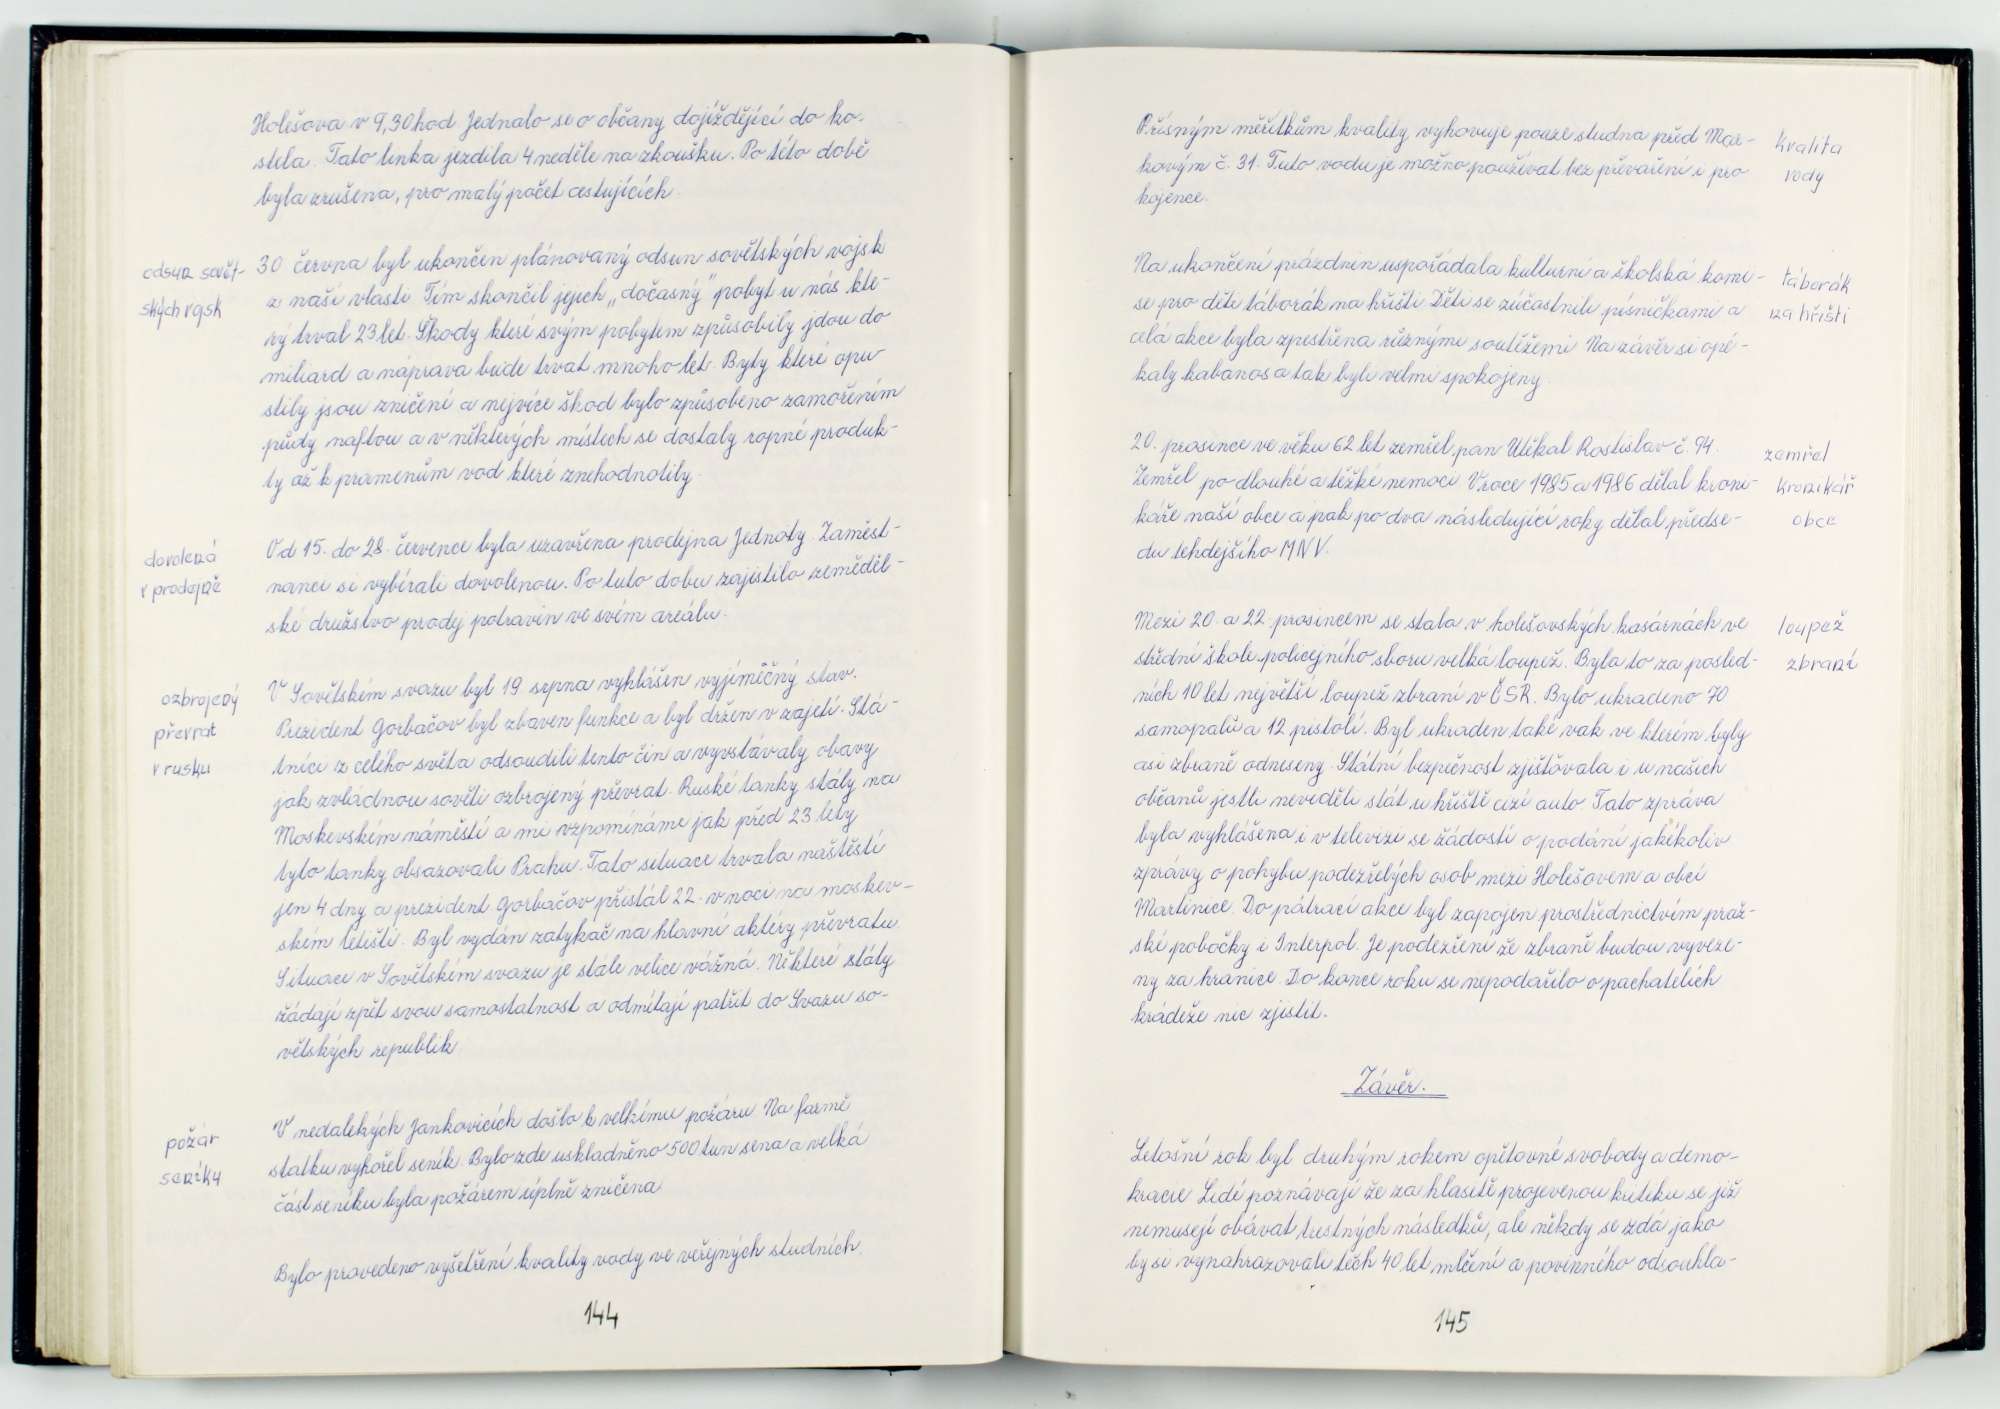 Holešova v 9,30 hod Jednalo se o občany dojíždějící do ko-
stela. Tato linka jezdila 4 neděle na zkoušku. Po této době
byla zrušena, pro malý počet cestujících.
odsun sovět-
ských vojsk
30 června byl ukončen plánovaný odsun sovětských vojsk
z naší vlasti Tím skončil jejich „dočasný" pobyt u nás kte-
rý trval 23 let. Škody které svým pobytem způsobily jdou do
miliard a náprava bude trvat mnoho let. Byty které opu
stily jsou zničeni a nejvíce škod bylo způsobeno zamořením
půdy naftou a v některých místech se dostaly ropné produk-
ty až k pramenům vod které znehodnotily.
dovolená
v prodejně
Od 15. do 28. července byla uzavřena prodejna Jednoty. Zaměst-
nanci si vybírali dovolenou. Po tuto dobu zajistilo zeměděl-
ské družstvo prodej potravin ve svém areálu.
ozbrojený
převrat
v rusku
V Sovětském svazu byl 19 srpna vyhlášen vyjímečný stav.
Prezident Gorbačov byl zbaven funkce a byl držen v zajetí. Stá-
tníci z celého světa odsoudili tento čin a vyvstávaly obavy
jak zvládnou sověti ozbrojený převrat. Ruské tanky stály na
Moskevském náměstí a mi vzpomínáme jak před 23 lety
tyto tanky obsazovali Prahu. Tato situace trvala naštěstí
jen 4 dny a prezident Gorbačov přistál 22. v noci na moskev-
ském letišti. Byl vydán zatykač na hlavní aktéry převratu.
Situace v Sovětském svazu je stále velice vážná. Některé státy
žádají zpět svou samostatnost a odmítají patřit do Svazu so-
větských republik
požár
seníku
V nedalekých Jankovicích došlo k velkímu požáru Na farmě
statku vyhořel seník. Bylo zde uskladněno 500 tun sena a velká
část seníku byla požárem úplně zničena
Bylo provedeno vyšetření kvality vody ve veřejných studních.
144
Přísným měřítkům kvality vyhovuje pouze studna před Mar-
kovým č. 31. Tuto vodu je možno používat bez převaření i pro
kojence.
kvalita
vody
Na ukončení prázdnin uspořádala kulturní a školská komi-
se pro děti táborák na hřišti Děti se zúčastnili písničkami a
celá akce byla zpestřena různými soutěžemi Na závěr si opé-
kaly kabanos a tak byli velmi spokojeny.
táborák
na hřišti
20. prosince ve věku 62 let zemřel pan Utěkal Rostislav č. 94.
Zemřel po dlouhé a těžké nemoci V roce 1985 a 1986 dělal kroni-
káře naší obce a pak po dva následující roky dělal předse-
du tehdejšího MNV.
zemřel
kronikář
obce
Mezi 20. a 22. prosincem se stala v holešovských kasárnách ve
střední škole policejního sboru velká loupež. Byla to za posled-
ních 10 let největší loupež zbraní v ČSR. Bylo ukradeno 70
samopalů a 12 pistolí. Byl ukraden také vak ve kterém byly
asi zbraně odneseny. Státní bezpečnost zjišťovala i u našich
občanů jestli neviděli stát u hřiště cizí auto. Tato zpráva
byla vyhlášena i v televizi se žádostí o podání jakékoliv
zprávy o pohybu podezřelých osob mezi Holešovem a obcí
Martinice. Do pátrací akce byl zapojen prostřednictvím praž-
ské pobočky i Interpol. Je podezření že zbraně budou vyveze-
ny za hranice Do konce roku se nepodařilo o pachatelích
krádeže nic zjistit.
loupež
zbraní
Závěr.
Letošní rok byl druhým rokem opětovné svobody a demo-
kracie Lidé poznávají že za hlasitě projevenou kritiku se již
nemusejí obávat trestných následků, ale někdy se zdá jako
by si vynahrazovali těch 40 let mlčení a povinného odsouhla-
145